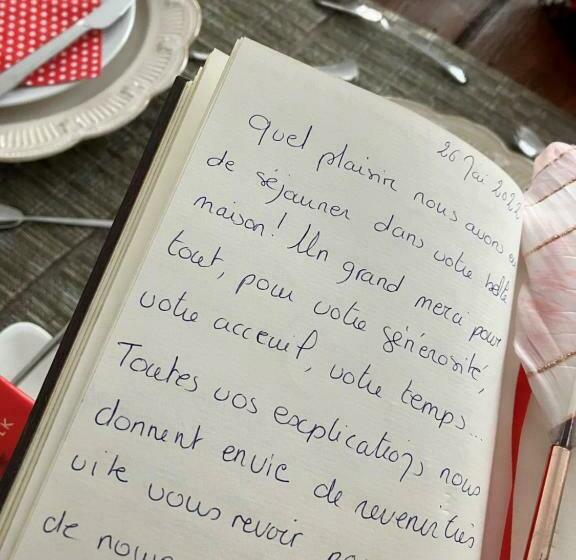 26 Mai 2022
Quel plaisir nous avons eu
de séjourner dans votre belle
maison! Un grand merci pour
tout, pour votre générosité,
votre acceuil, votre temps...
Toutes vos explications nous
donnent envie de revenir très
vite vous revoir
de nouv